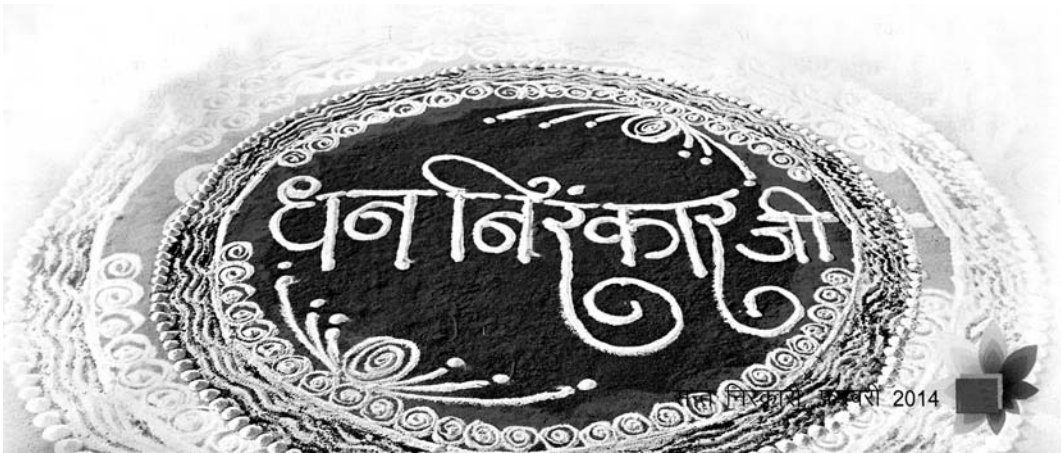 धन निरंकार जी
सन्त निरंकारी, फरवरी 2014